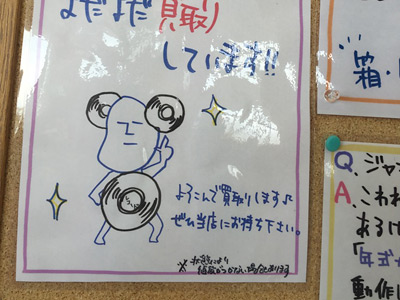 まだまだ買取り
しています!!
よろこんで買取りします♪
ぜひ当店にお持ち下さい。
※状態により
値段がつかない場合もあります
箱・
Q.ジャ
A.こわれ
あるけ
動作